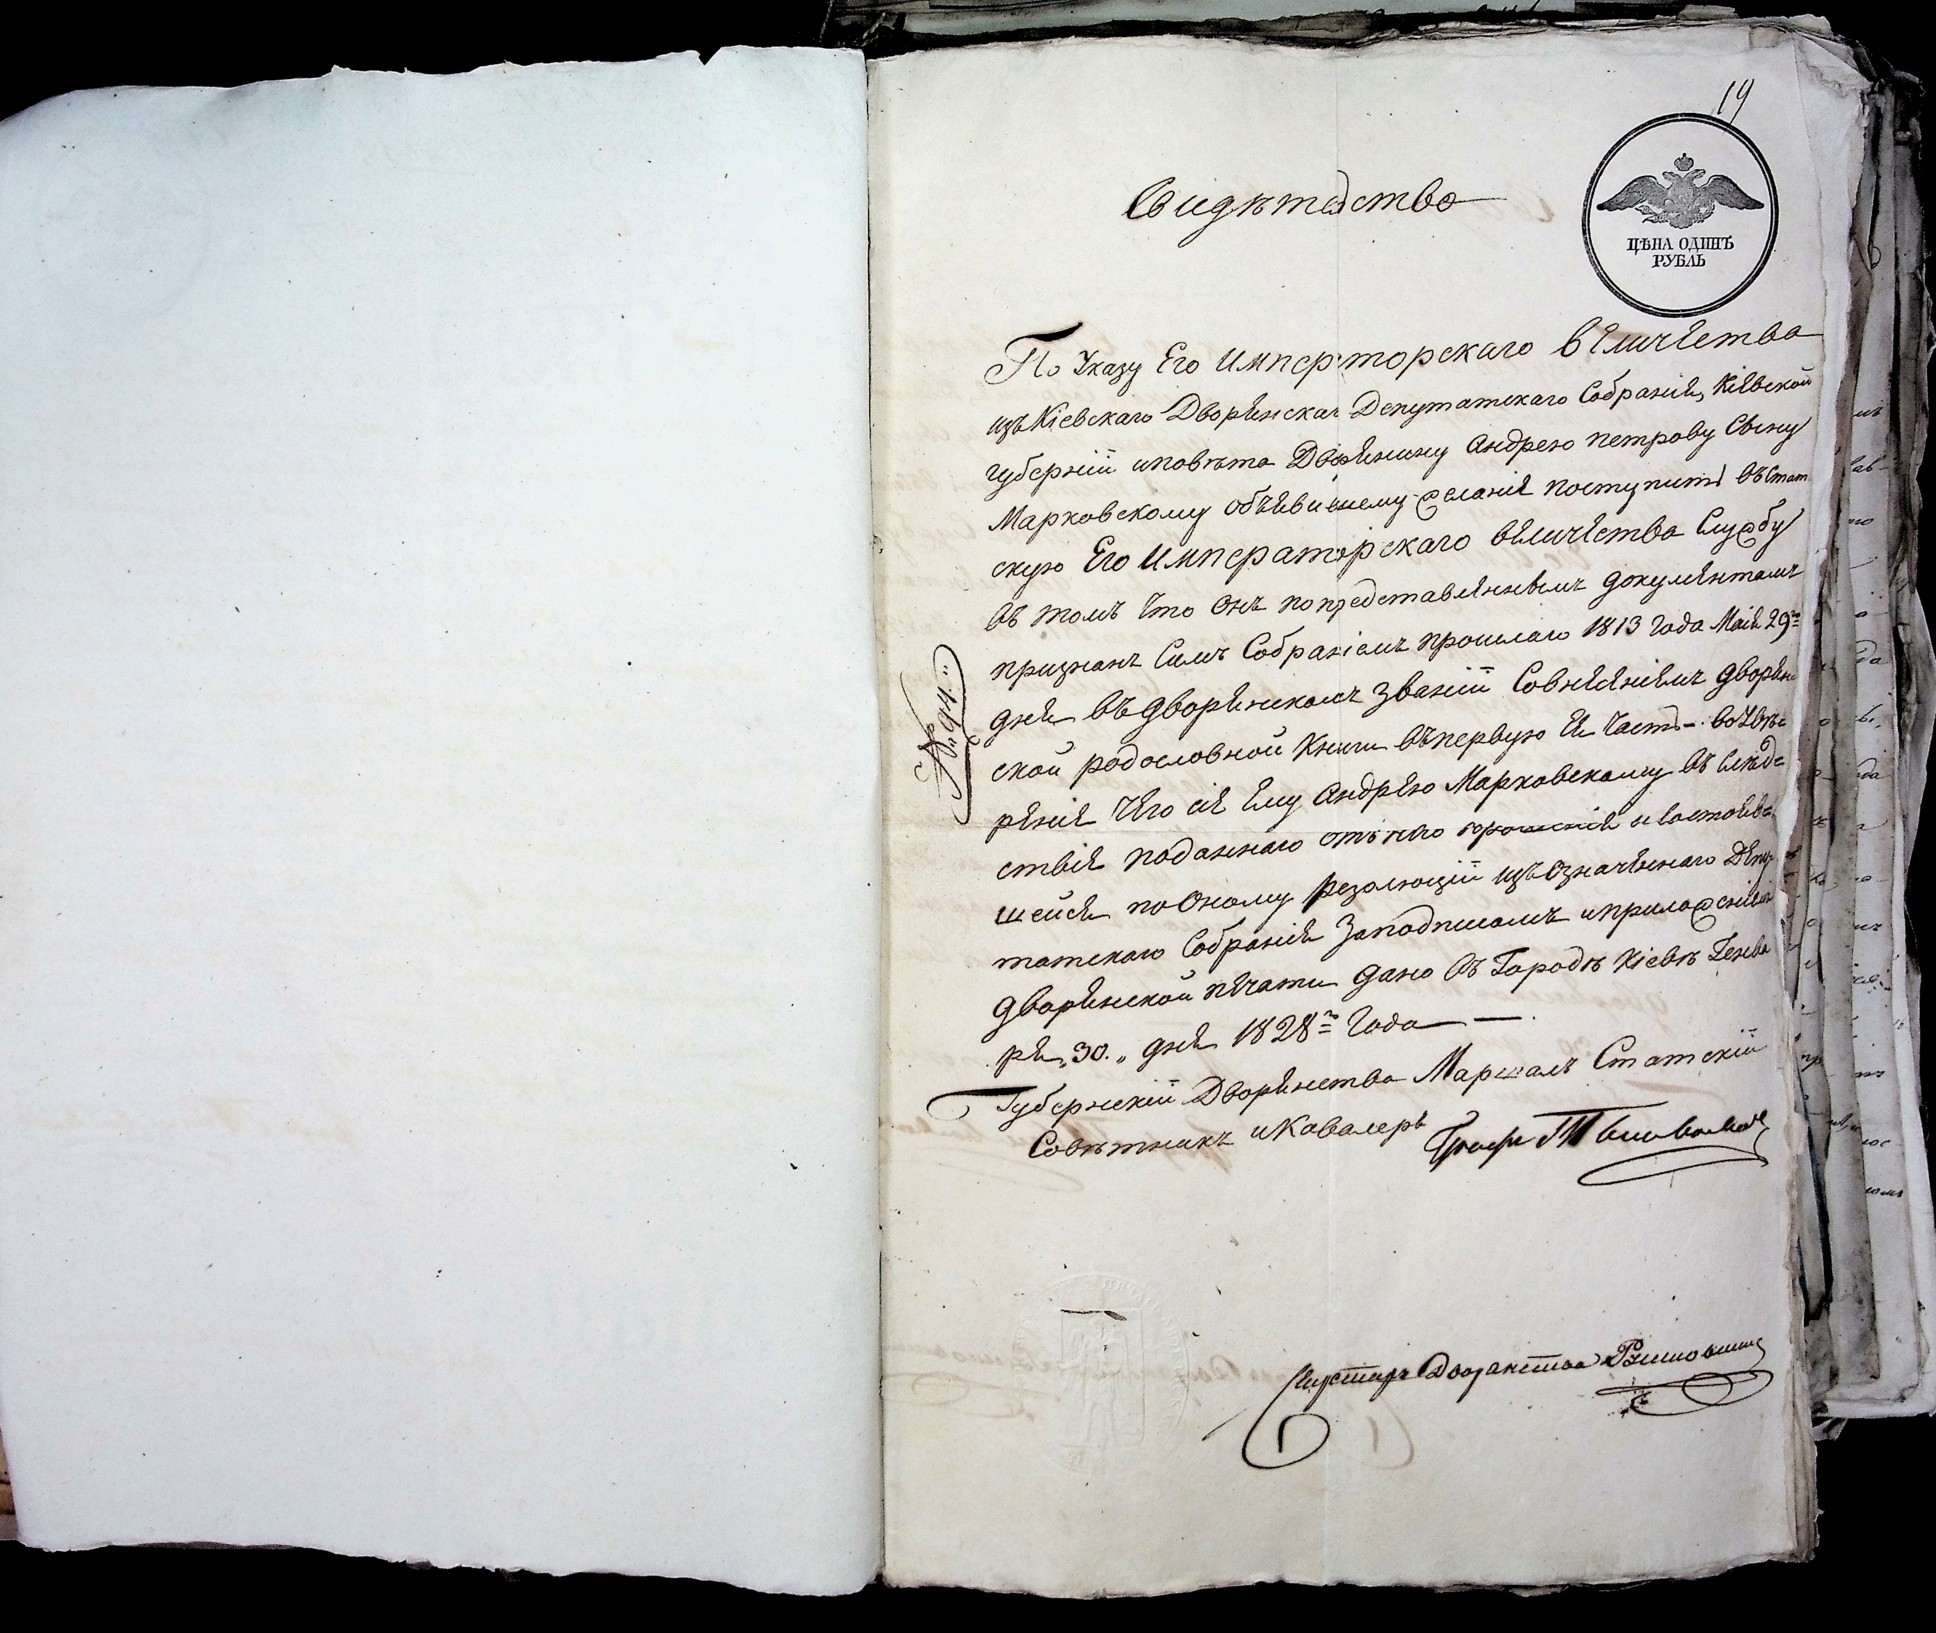 19
ЦѢНА ОДИНЪ
РУБЛЬ
Свидѣтельство
По Указу Его Императорскаго Величества
изъ Кіевскаго Дворянскаг Депутатскаго Собранія, Кіевской
губерніи и повѣта Дворянину Андрею петрову Сыну
Марковскому объявившему желаніе поступить въ Стат
скую Его Императорскаго величества Службу
въ томъ что онъ по представленнымъ документамъ
признанъ Симъ Собраніемъ прошлаго 1813 года Маія 29го
дня въ дворянскомъ званіи Совнесеніемъ дворян
ской родословной Книги въ первую Ея Часть - во увѣ
№ 94.
реніе чего сіе ему Андрею Марковскому въ слѣд=
ствіе поданнаго отъ него прошенія и состоявъ
шейся по оному резолюціи изъ означеннаго Депу
татскаго Собранія За подписомъ и приложеніемъ
дворянской печати дано въ Городѣ Кіевѣ Генва
ря „30." дня 1828го года
Губернскій Дворянства Маршалъ Статскій
Совѣтникъ и Кавалеръ Графъ
Секретарь Дворянства